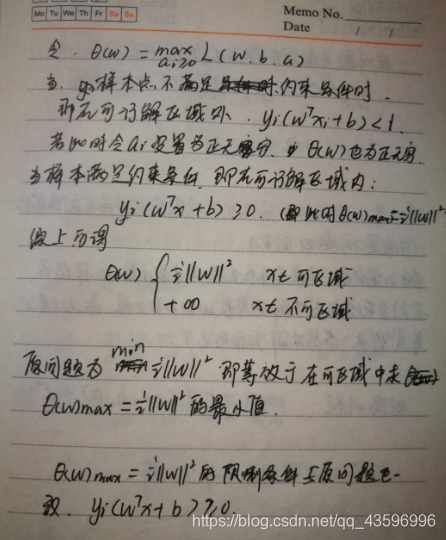 Mo Tu We Th Fr Sa Su
Memo No.
Date / /
令. θ(w) = max αi≥0 L(w.b.a)
当. 样本点不满足约束条件时.
即在可行解区域外. yi(wᵀxi+b)<1.
若此时令ai设置为正无穷, θ(w)也为正无穷.
当样本满足约束条件, 即在可行解区域内:
yi(wᵀx+b)≥0. (即此时θ(w)max = ½||w||²
综上可得
θ(w) { ½||w||² x∈可区域
+∞ x∈不可区域
原问题为 min ½||w||² 即等效于在可区域中求
θ(w)max = ½||w||² 的最小值.
θ(w)max = ½||w||² 的限制条件与原问题也一
致. yi(wᵀx+b)≥0.
https://blog.csdn.net/qq_43596996